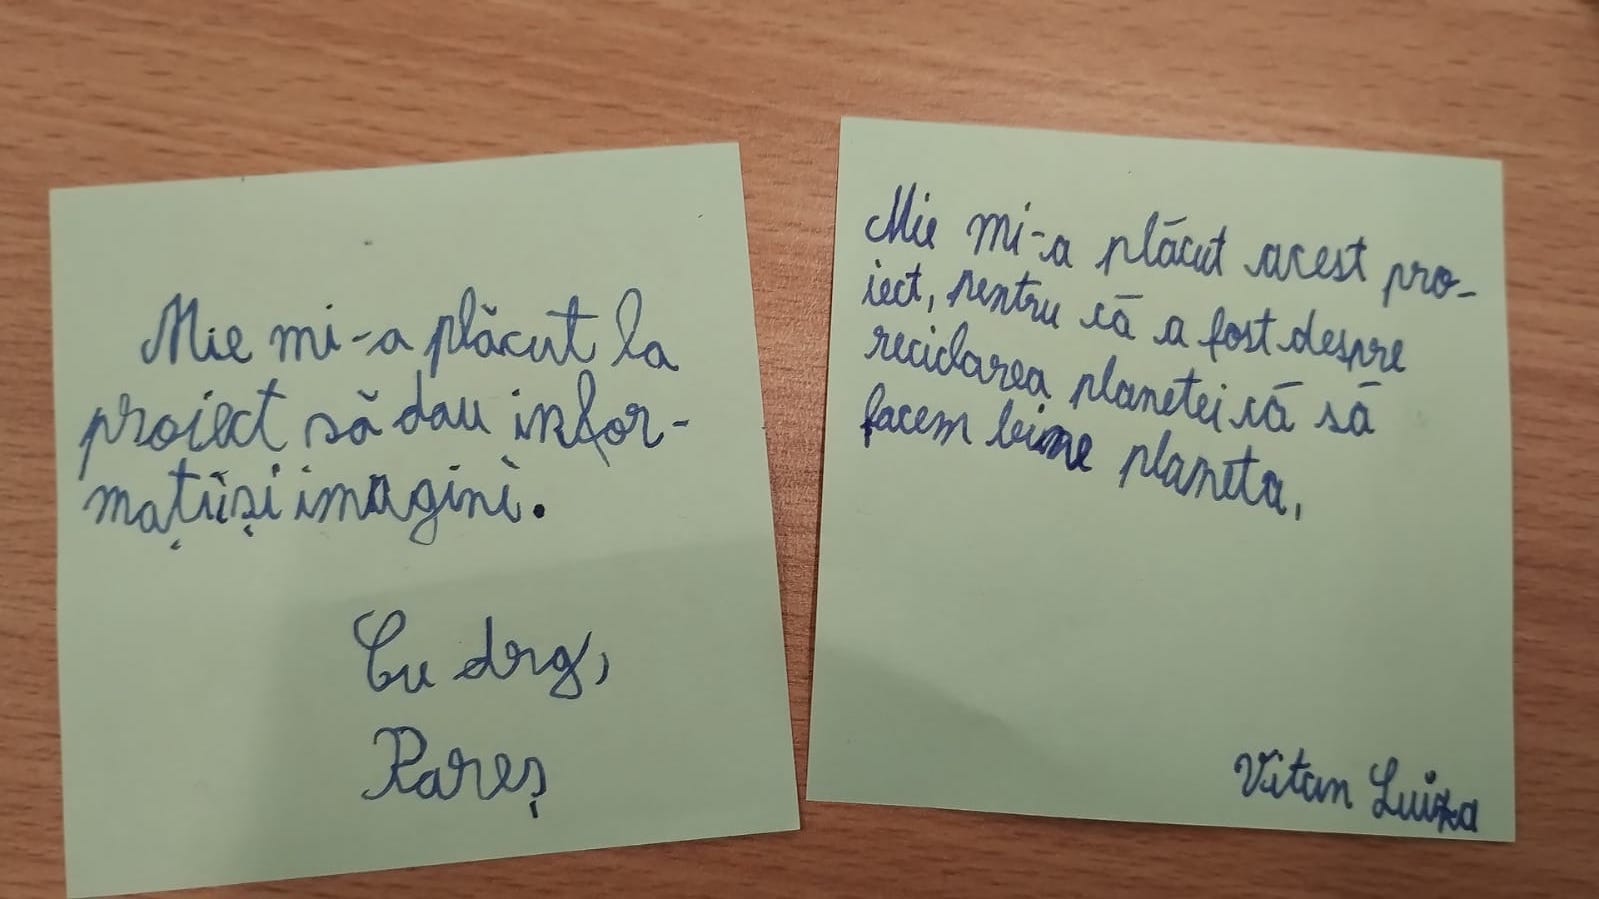 Mie mi-a plăcut la
proiect să dau infor-
mații și imagini.
Cu drg,
Rareș
Mie mi-a plăcut acest pro-
iect, pentru că a fost despre
reciclarea planetei că să
facem bine planeta,
Vitan Luiza